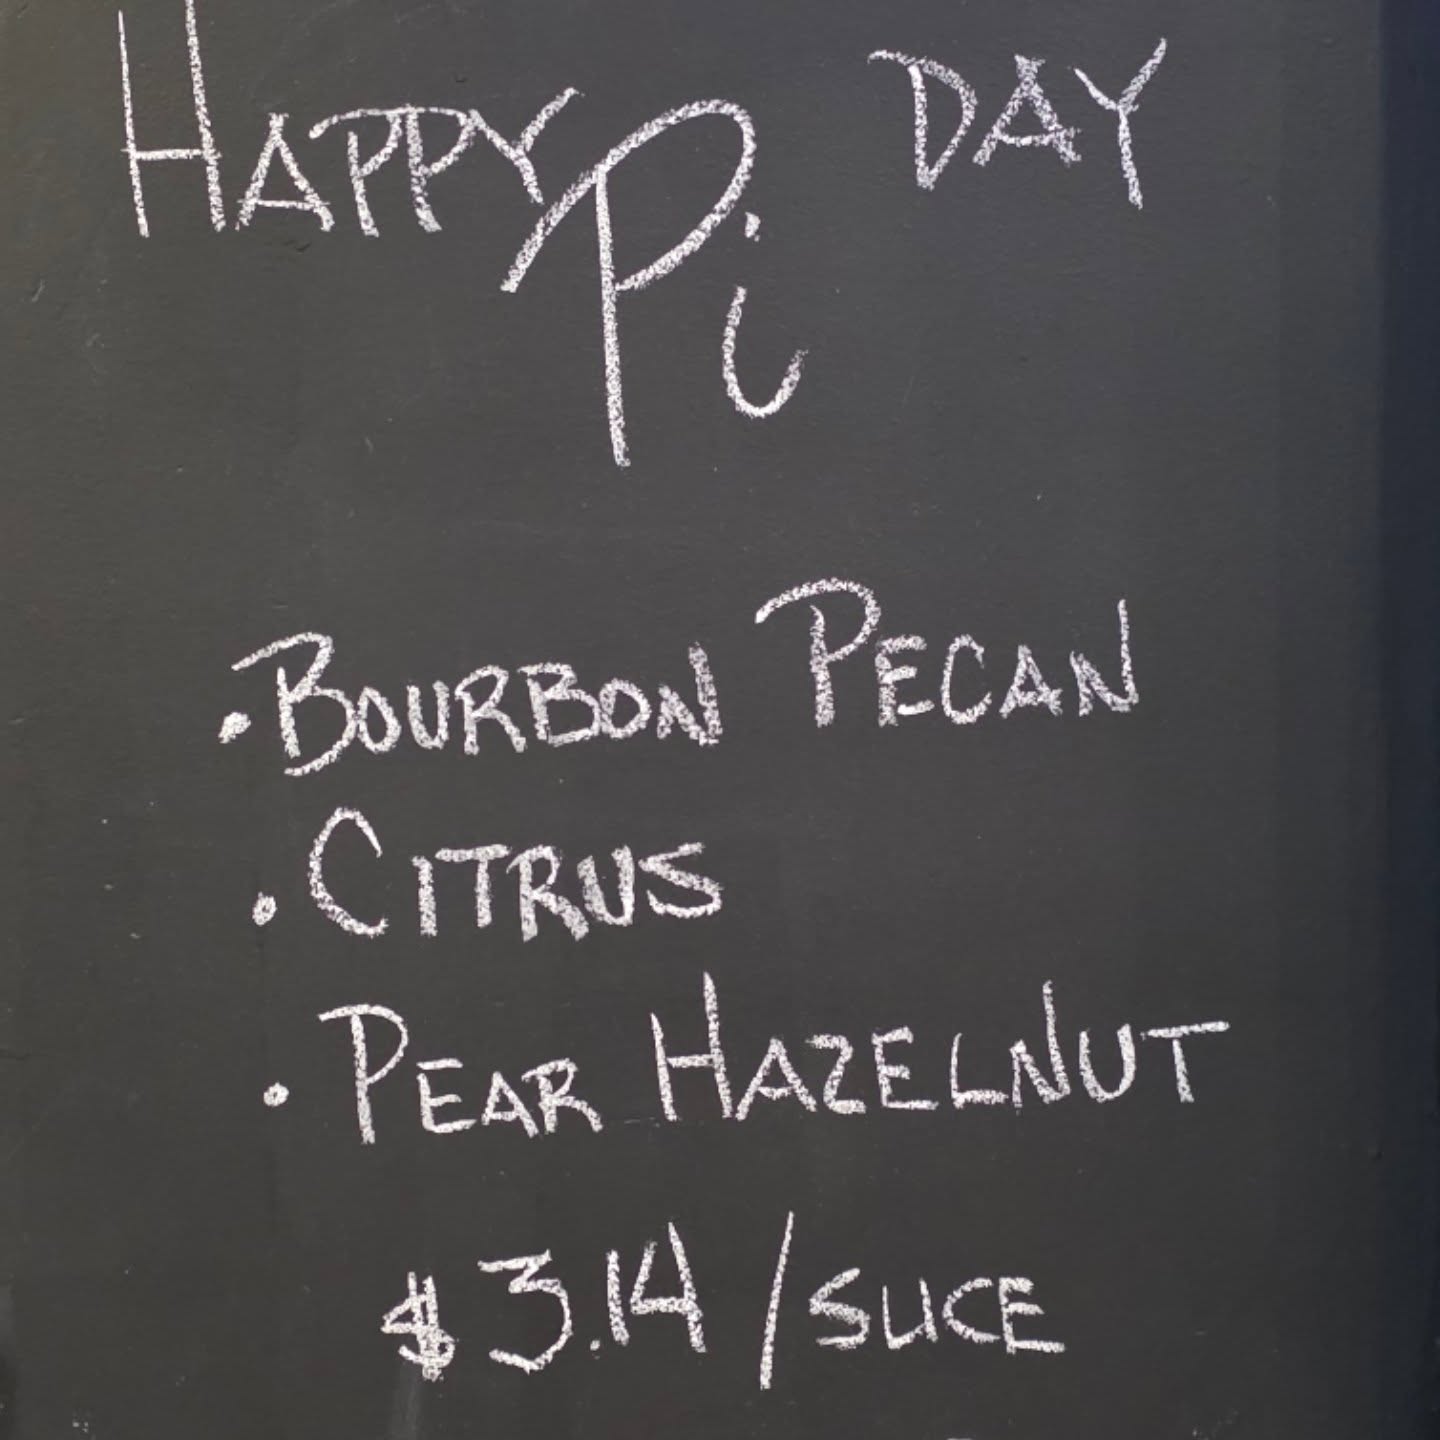 HAPPY Pi DAY
• BOURBON PECAN
• CITRUS
• PEAR HAZELNUT
$3.14/SLICE